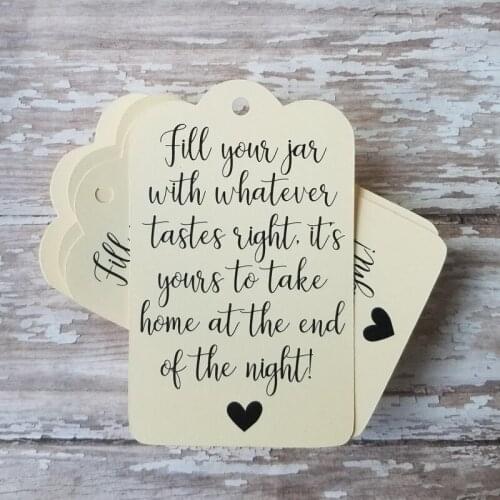 Fill your jar
with whatever
tastes right, it's
yours to take
home at the end
of the night!
Fill